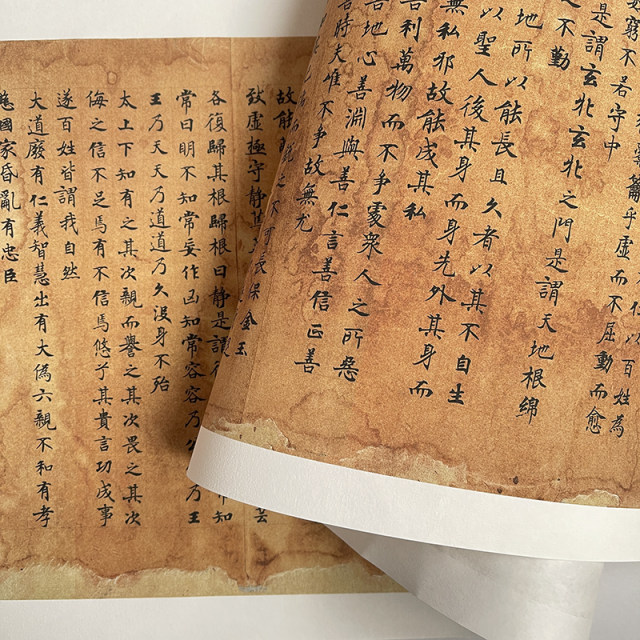 以百姓為
籥乎虛而不屈動而愈
窮不若守中
是謂玄牝玄牝之門是謂天地根綿
之不勤
地所以能長且久者以其不自生
以聖人後其身而身先外其身而
無私邪故能成其私
善利萬物而不爭處衆人之所惡
善地心善淵與善仁言善信正善
時夫唯不爭故無尤
長保金玉
故能
致虛極守靜 芸
各復歸其根歸根曰靜是謂 知
常曰明不知常妄作凶知常容容乃公 乃王
王乃天天乃道道乃久沒身不殆
太上下知有之其次親而譽之其次畏之其次
侮之信不足焉有不信焉悠兮其貴言功成事
遂百姓皆謂我自然
大道廢有仁義智慧出有大偽六親不和有孝
慈國家昏亂有忠臣